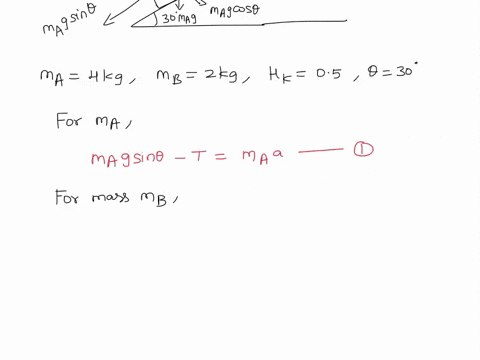 mAgsinθ
30° mAg
mAgcosθ
mA = 4kg, mB = 2kg, μK = 0.5, θ = 30°
For mA,
mAgsinθ - T = mAa —— ①
For mass mB,